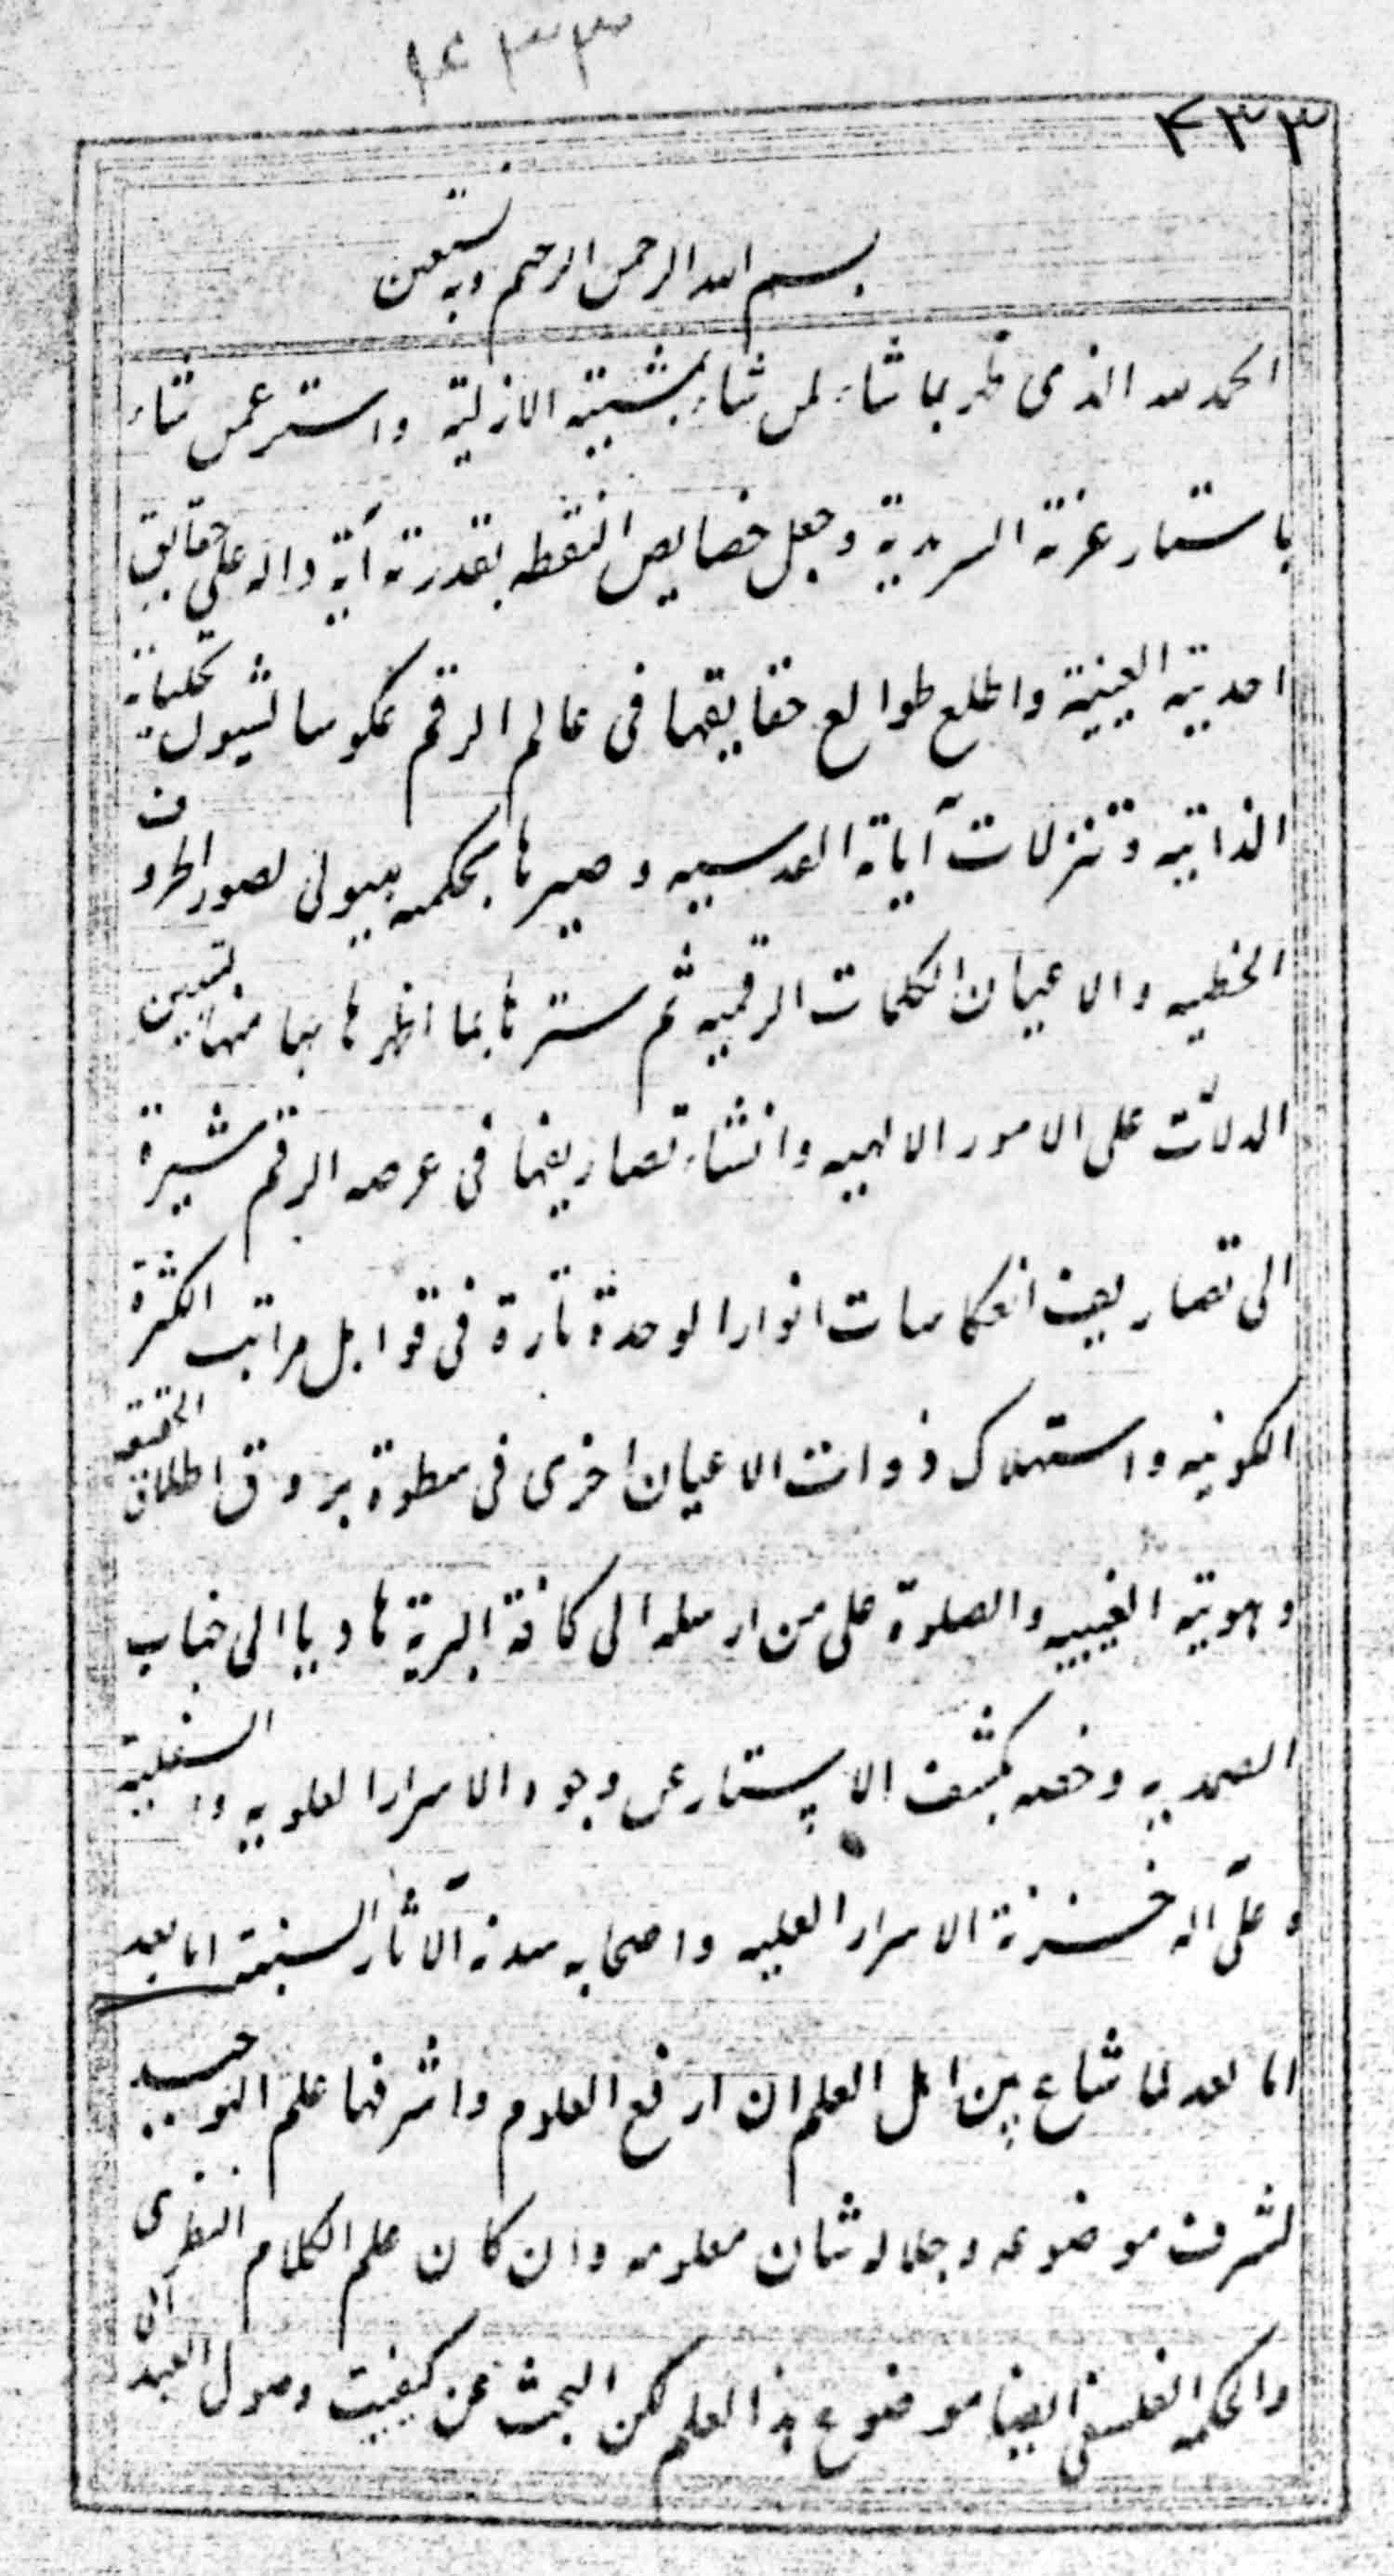 ۱۴۳۳
۴۳۳
بسم الله الرحمن الرحیم وبه نستعین
الحمد لله الذی ظهر بما شاء لمن شاء بمشیته الازلیته واستتر عمن شاء
باستار عزته السرمدیة وجعل خصایص النقطه بقدرته آیة داله علی حقایق
احدیته العینیة واطلع طوالع حقایقها فی عالم الرقم عکوسا لشیون تجلیاته
الذاتیه وتنزلات آیاته القدسیه وصیرها بحکمه هیولی لصور الحروف
الخطیه والاعیان الکلمات الرقمیه ثم سترها بما اظهرها بها منها لتبیین
الدلات علی الامور الالهیه وانشاء تصاریفها فی عرصه الرقم مشیرة
الی تصاریف انعکاسات انوار الوحدة تارة فی قوابل مراتب الکثرة
الکونیه واستهلاک ذوات الاعیان اخری فی سطوة بروق اطلاق الحقیقه
وهویته الغیبیه والصلوة علی من ارسله الی کافة البریة هادیا الی جناب
الصمدیه وخصه بکشف الاستار عن وجوه الاسرار العلویه والسفلیة
وعلی اله خزنة الاسرار العلیه واصحابه سدنة الآثار السنیة اما بعد
اما بعد لما شاع بین اهل العلم ان ارفع العلوم واشرفها علم التوحید
لشرف موضوعه وجلاله شان معلومه وان کان علم الکلام النظری
والحکمه الفلسفی ایضا موضوع هذا العلم لکن البحث عن کیفیت وصول العبد الی